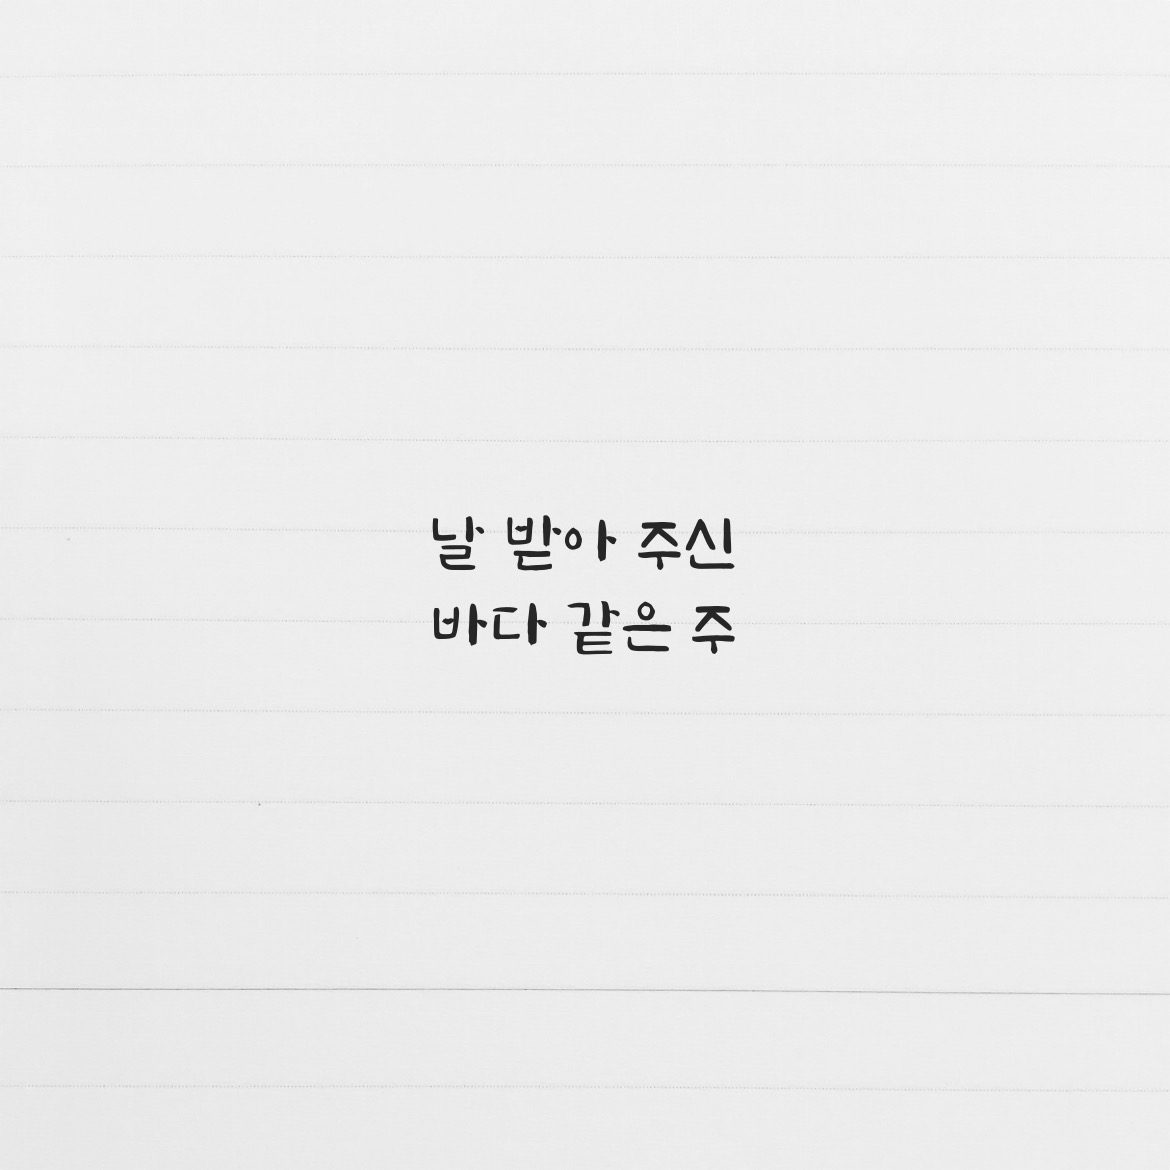 날 받아 주신
바다 같은 주